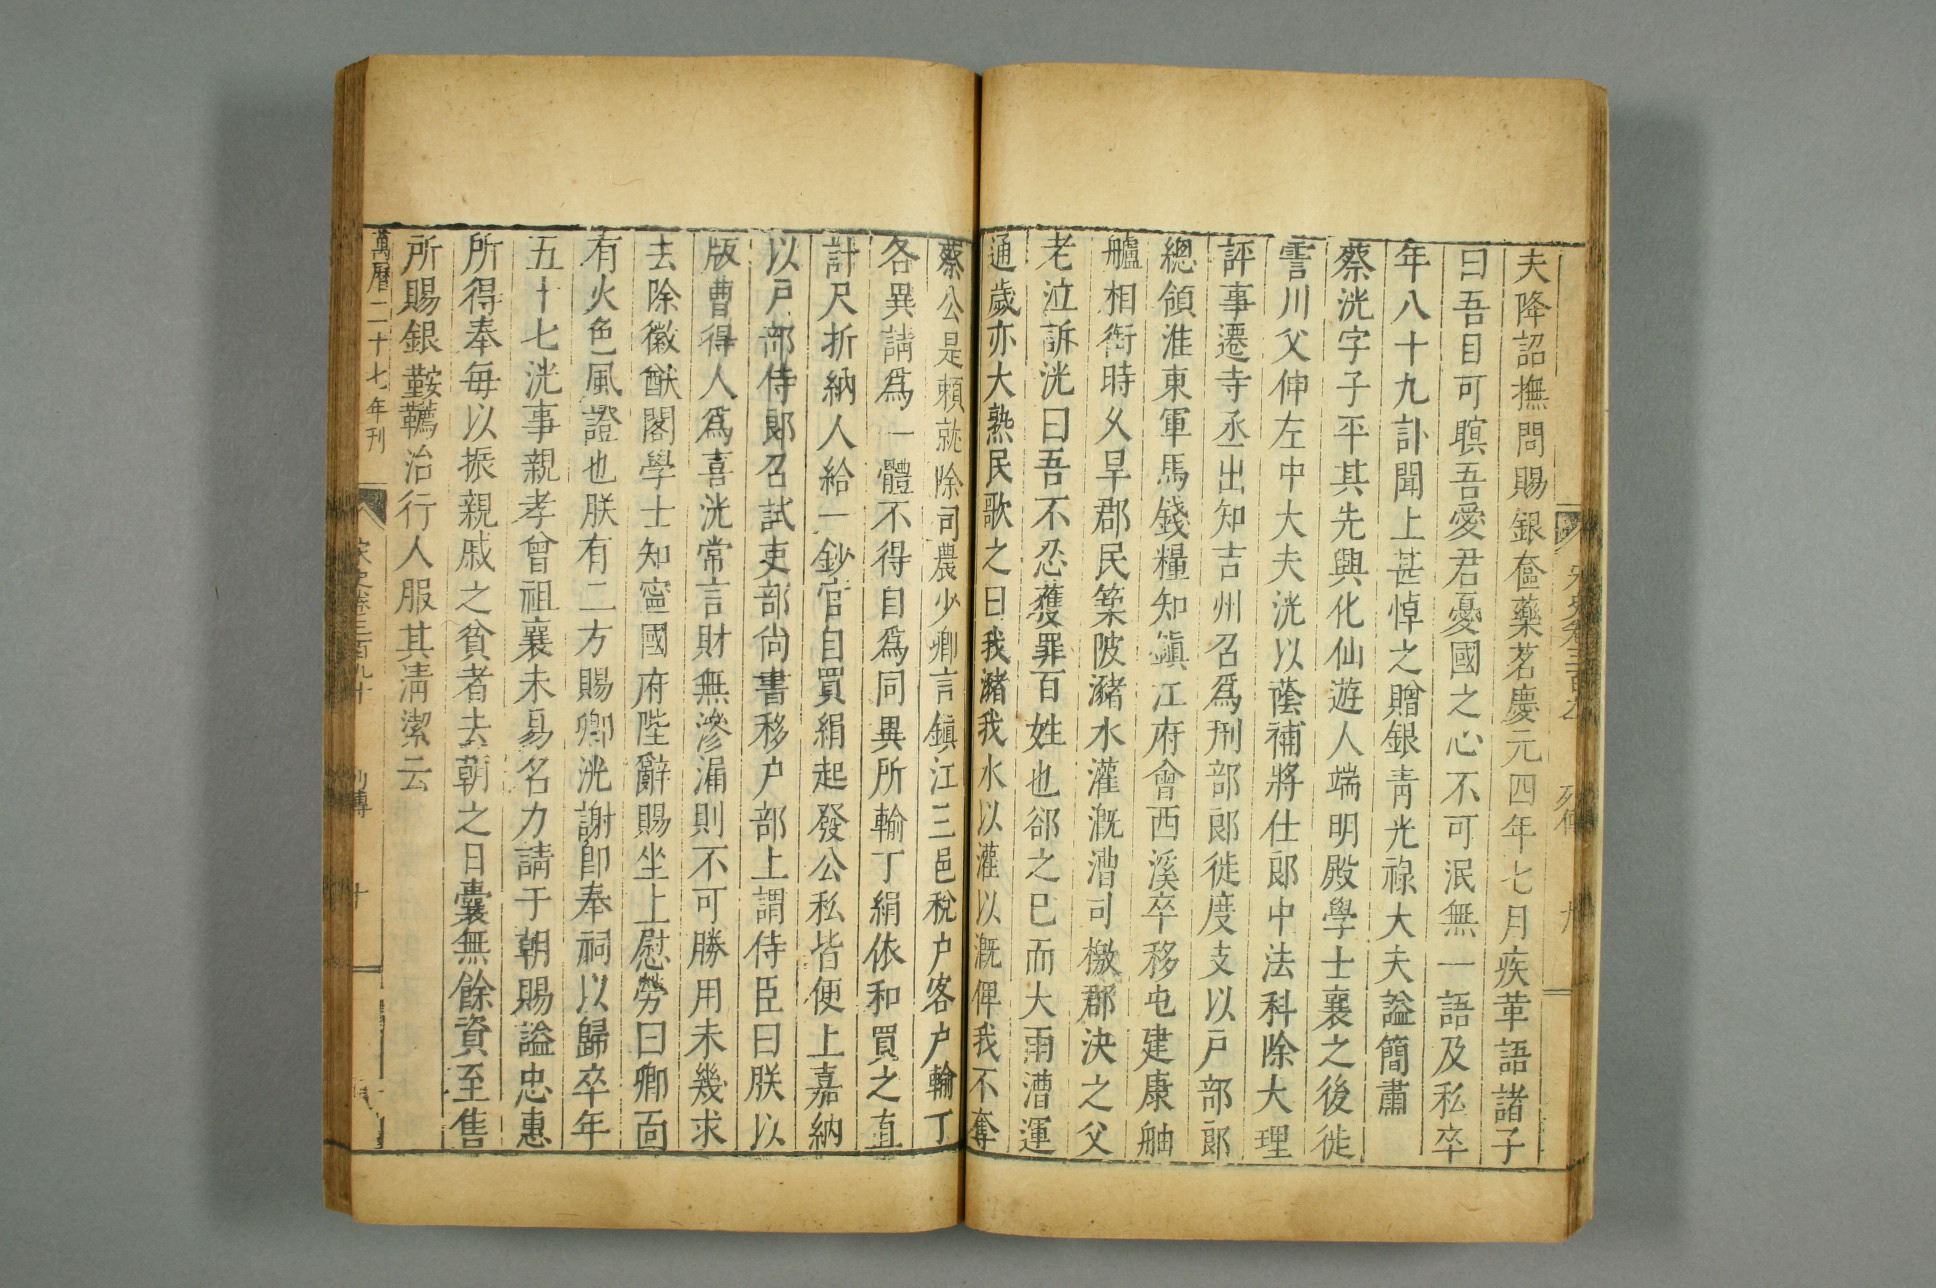 宋史卷三百九十
列傳
九
夫降詔撫問賜銀奩藥茗慶元四年七月疾革語諸子
曰吾目可瞑吾愛君憂國之心不可泯無一語及私卒
年八十九訃聞上甚悼之贈銀青光祿大夫謚簡肅
蔡洸字子平其先興化仙遊人端明殿學士襄之後徙
霅川父伸左中大夫洸以蔭補將仕郎中法科除大理
評事遷寺丞出知吉州召爲刑部郎徙度支以戶部郎
總領淮東軍馬錢糧知鎭江府會西溪卒移屯建康舳
艫相銜時久旱郡民築陂瀦水灌漑漕司檄郡決之父
老泣訴洸曰吾不忍獲罪百姓也郤之已而大雨漕運
通歲亦大熟民歌之曰我瀦我水以灌以漑俾我不奪
蔡公是賴就除司農少卿言鎭江三邑稅戶客戶輸丁
各異請爲一體不得自爲同異所輸丁絹依和買之直
計尺折納人給一鈔官自買絹起發公私皆便上嘉納
以戶部侍郎召試吏部尚書移戶部上謂侍臣曰朕以
版曹得人爲喜洸常言財無滲漏則不可勝用未幾求
去除徽猷閣學士知寧國府陛辭賜坐上慰勞曰卿面
有火色風證也朕有二方賜卿洸謝卽奉祠以歸卒年
五十七洸事親孝曾祖襄未易名力請于朝賜謚忠惠
所得奉每以振親戚之貧者去朝之日囊無餘資至售
所賜銀鞍韉治行人服其清潔云
萬曆二十七年刊
宋史卷三百九十
列傳
十